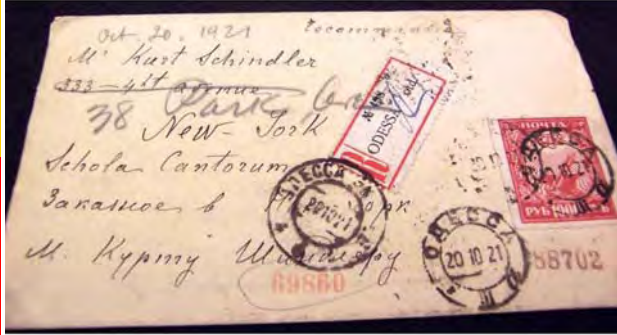 Oct. 20. 1921
Mr Kurt Schindler
333 – 4st avenue
38 Park
New-York
Schola Cantorum
Заказное в
М. Курту Шиндлеру
R ODESSA
ПОЧТА
РУБ.
ОДЕССА
20 10 21
ОДЕССА
20 10 21
69860
88702